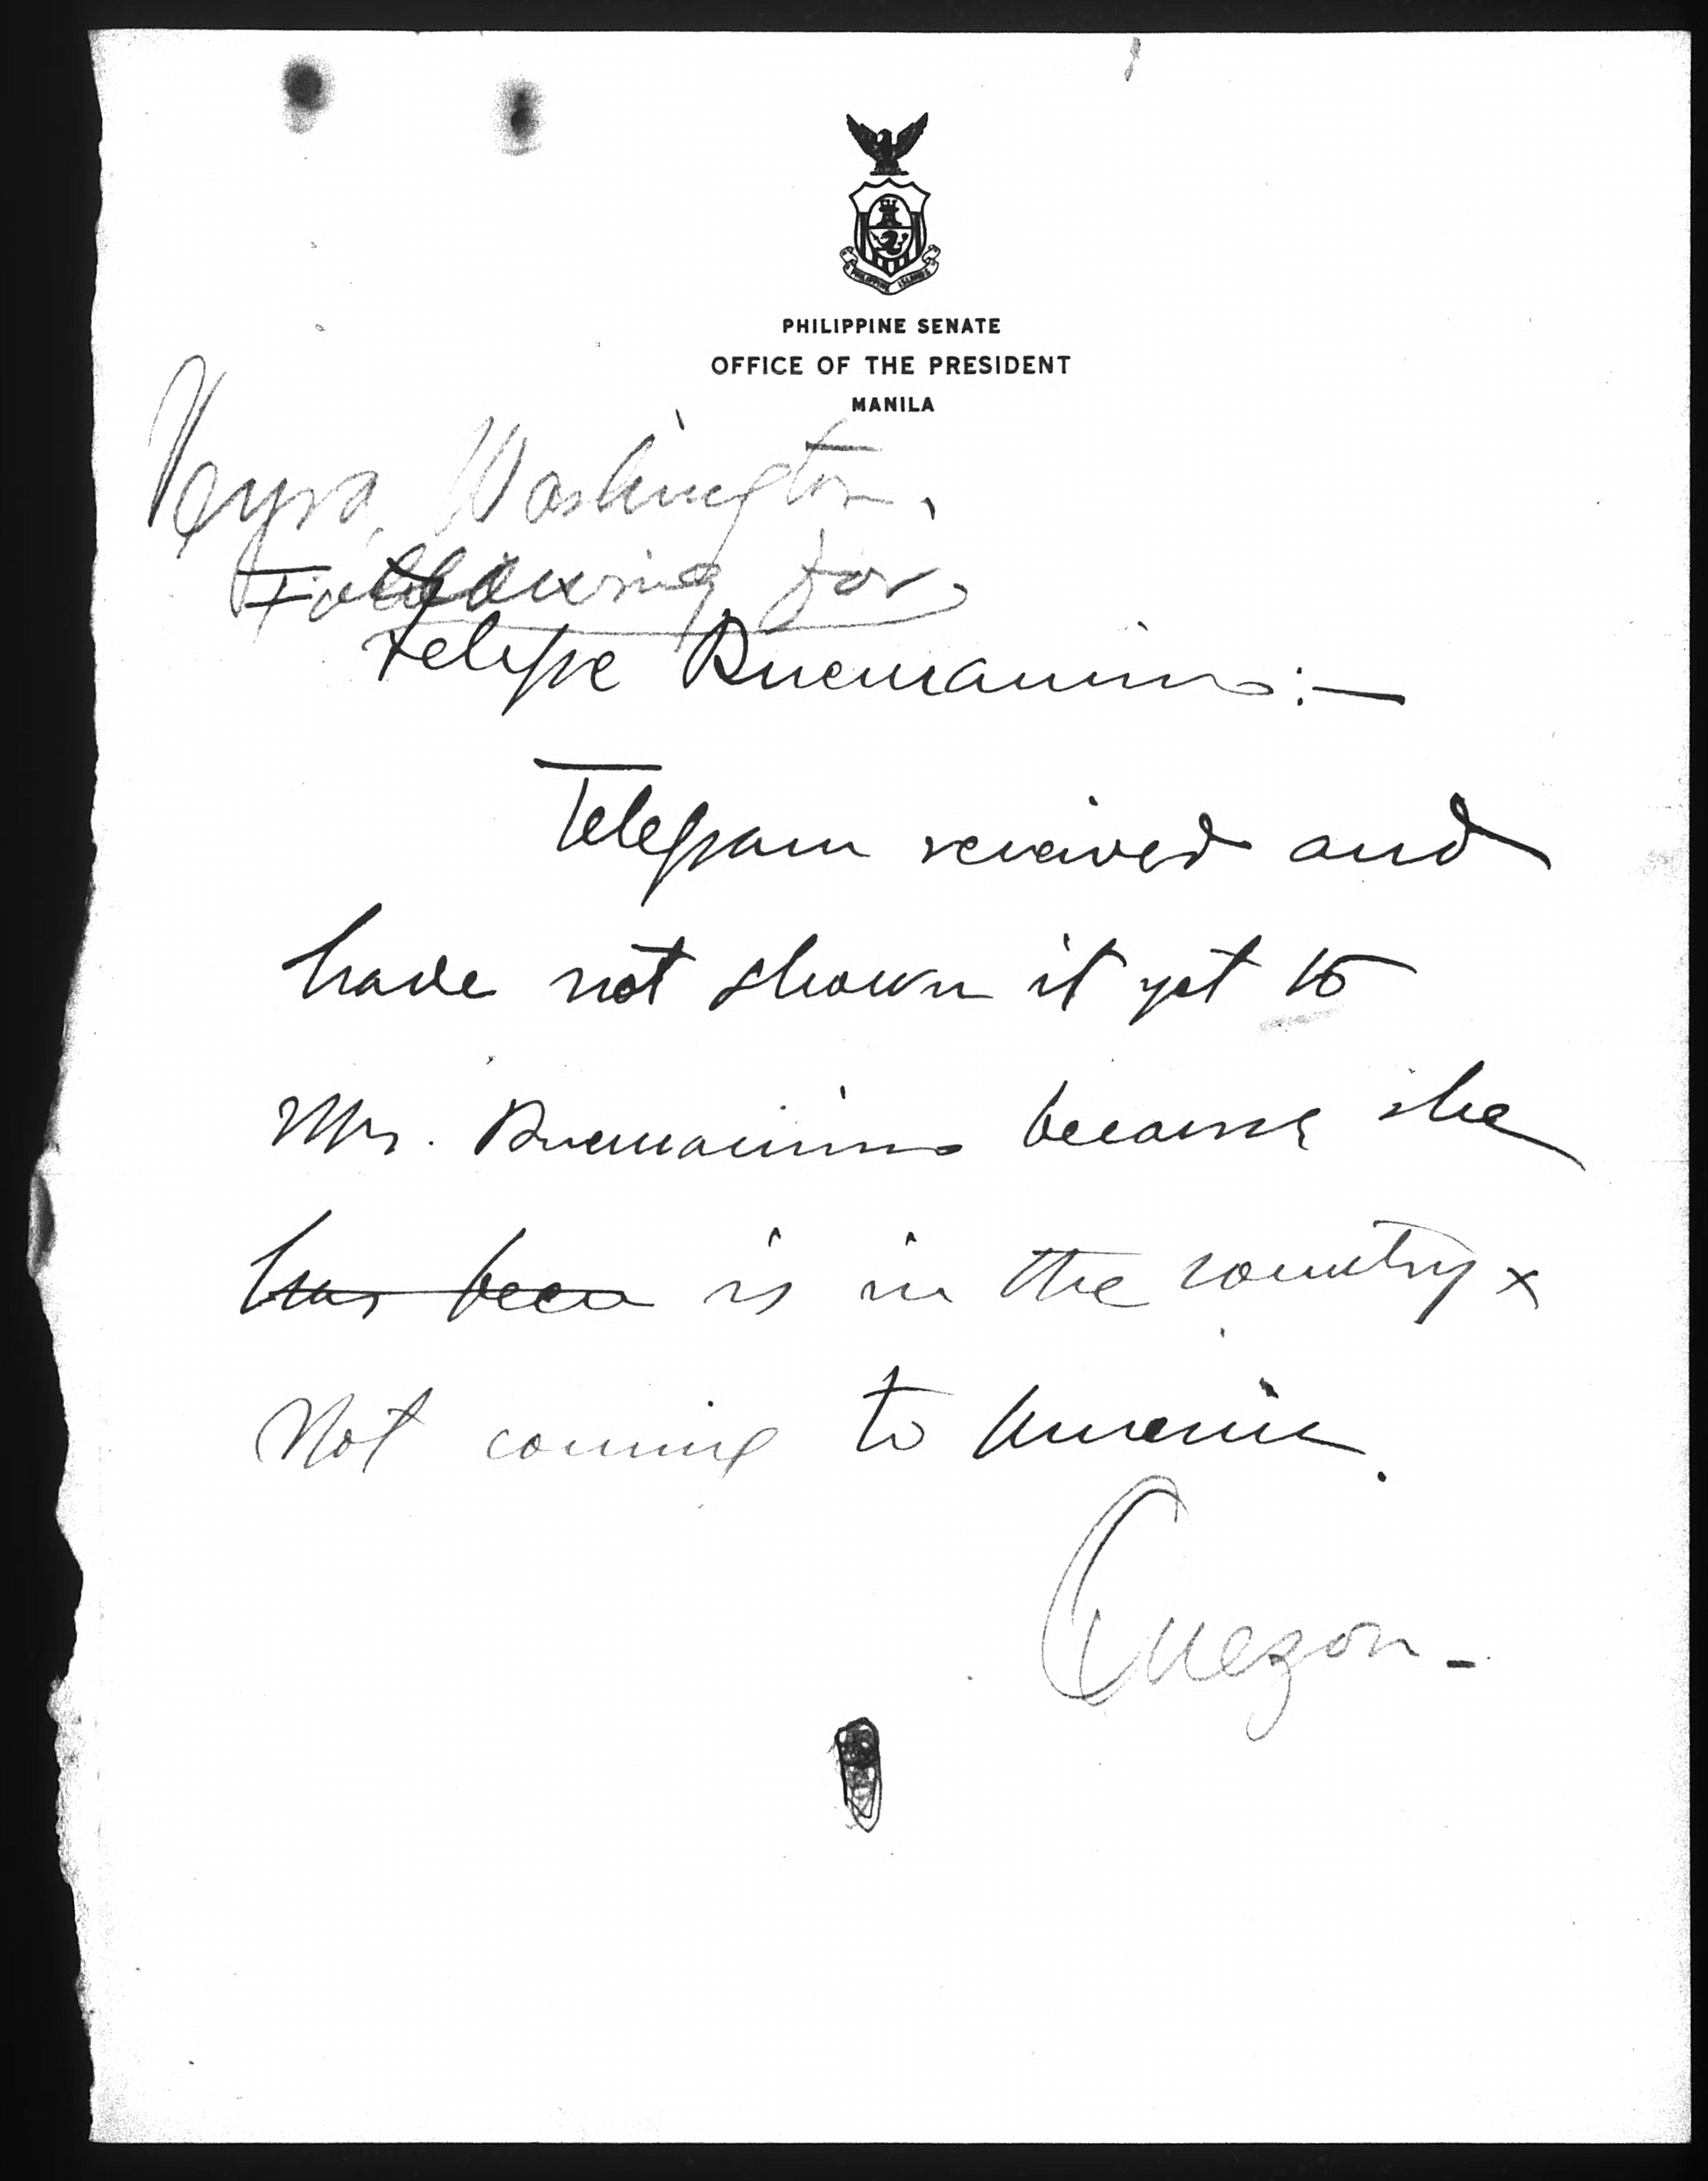 PHILIPPINE ISLANDS
PHILIPPINE SENATE
OFFICE OF THE PRESIDENT
MANILA
Washington.
Following for
Felipe Buencamino:—
Telegram received and
have not shown it yet to
Mrs. Buencamino because she
has been is in the country x
Not coming to America.
Quezon-